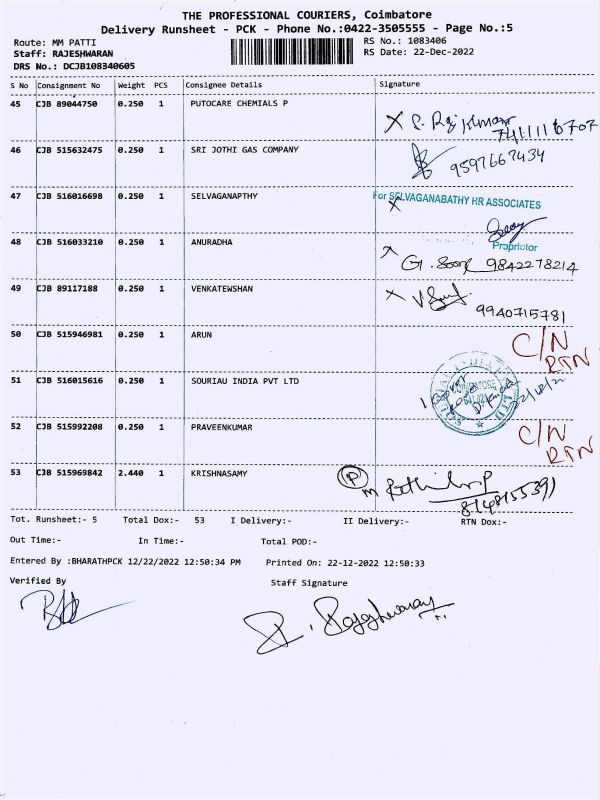 THE PROFESSIONAL COURIERS, Coimbatore
Delivery Runsheet - PCK - Phone No.:0422-3505555 - Page No.:5
Route: MM PATTI
RS No.: 1083406
Staff: RAJESHWARAN
RS Date: 22-Dec-2022
DRS No.: DCJB108340605
S No Consignment No Weight PCS Consignee Details Signature
45 CJB 89044750 0.250 1 PUTOCARE CHEMIALS P
46 CJB 515632475 0.250 1 SRI JOTHI GAS COMPANY
9597667434
47 CJB 516016698 0.250 1 SELVAGANAPTHY For SELVAGANABATHY HR ASSOCIATES
Proprietor
48 CJB 516033210 0.250 1 ANURADHA
9842278214
49 CJB 89117188 0.250 1 VENKATEWSHAN
9940715781
50 CJB 515946981 0.250 1 ARUN C/N
RTN
51 CJB 516015616 0.250 1 SOURIAU INDIA PVT LTD
52 CJB 515992208 0.250 1 PRAVEENKUMAR C/N
RTN
53 CJB 515969842 2.440 1 KRISHNASAMY P
8148155391
Tot. Runsheet:- 5 Total Dox:- 53 I Delivery:- II Delivery:- RTN Dox:-
Out Time:- In Time:- Total POD:-
Entered By :BHARATHPCK 12/22/2022 12:50:34 PM Printed On: 22-12-2022 12:50:33
Verified By Staff Signature